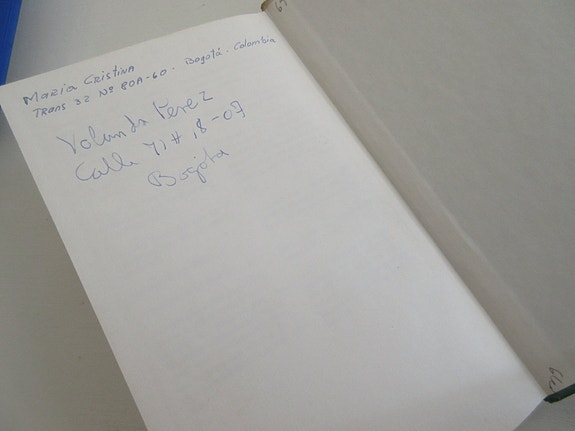 Maria Cristina
Trans 32 Nº 80A-60. Bogotá. Colombia
Yolanda Perez
Calle 71 # 18-07
Bogota